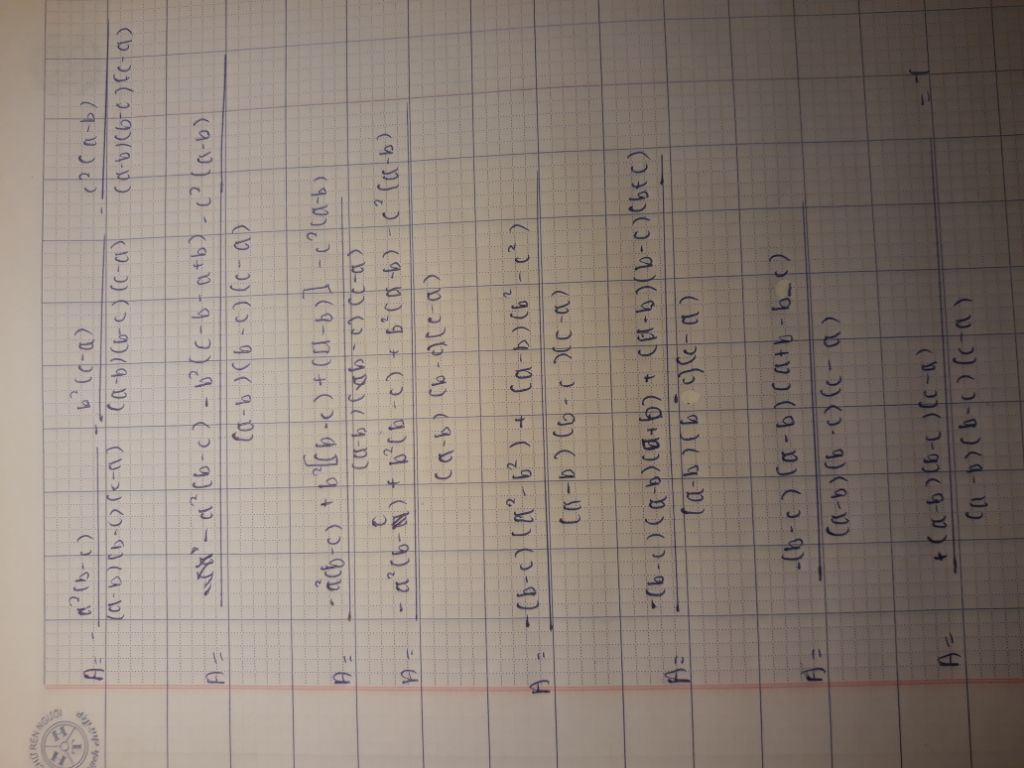 A = - a²(b-c) / (a-b)(b-c)(c-a) - b²(c-a) / (a-b)(b-c)(c-a) - c²(a-b) / (a-b)(b-c)(c-a)
A = -a²(b-c) - b²(c-b-a+b) - c²(a-b) / (a-b)(b-c)(c-a)
A = -a²(b-c) + b²[(b-c) + (a-b)] - c²(a-b) / (a-b)(b-c)(c-a)
A = -a²(b-c) + b²(b-c) + b²(a-b) - c²(a-b) / (a-b)(b-c)(c-a)
A = -(b-c)(a²-b²) + (a-b)(b²-c²) / (a-b)(b-c)(c-a)
A = -(b-c)(a-b)(a+b) + (a-b)(b-c)(b+c) / (a-b)(b-c)(c-a)
A = -(b-c)(a-b)(a+b-b-c) / (a-b)(b-c)(c-a)
A = +(a-b)(b-c)(c-a) / (a-b)(b-c)(c-a) = -1